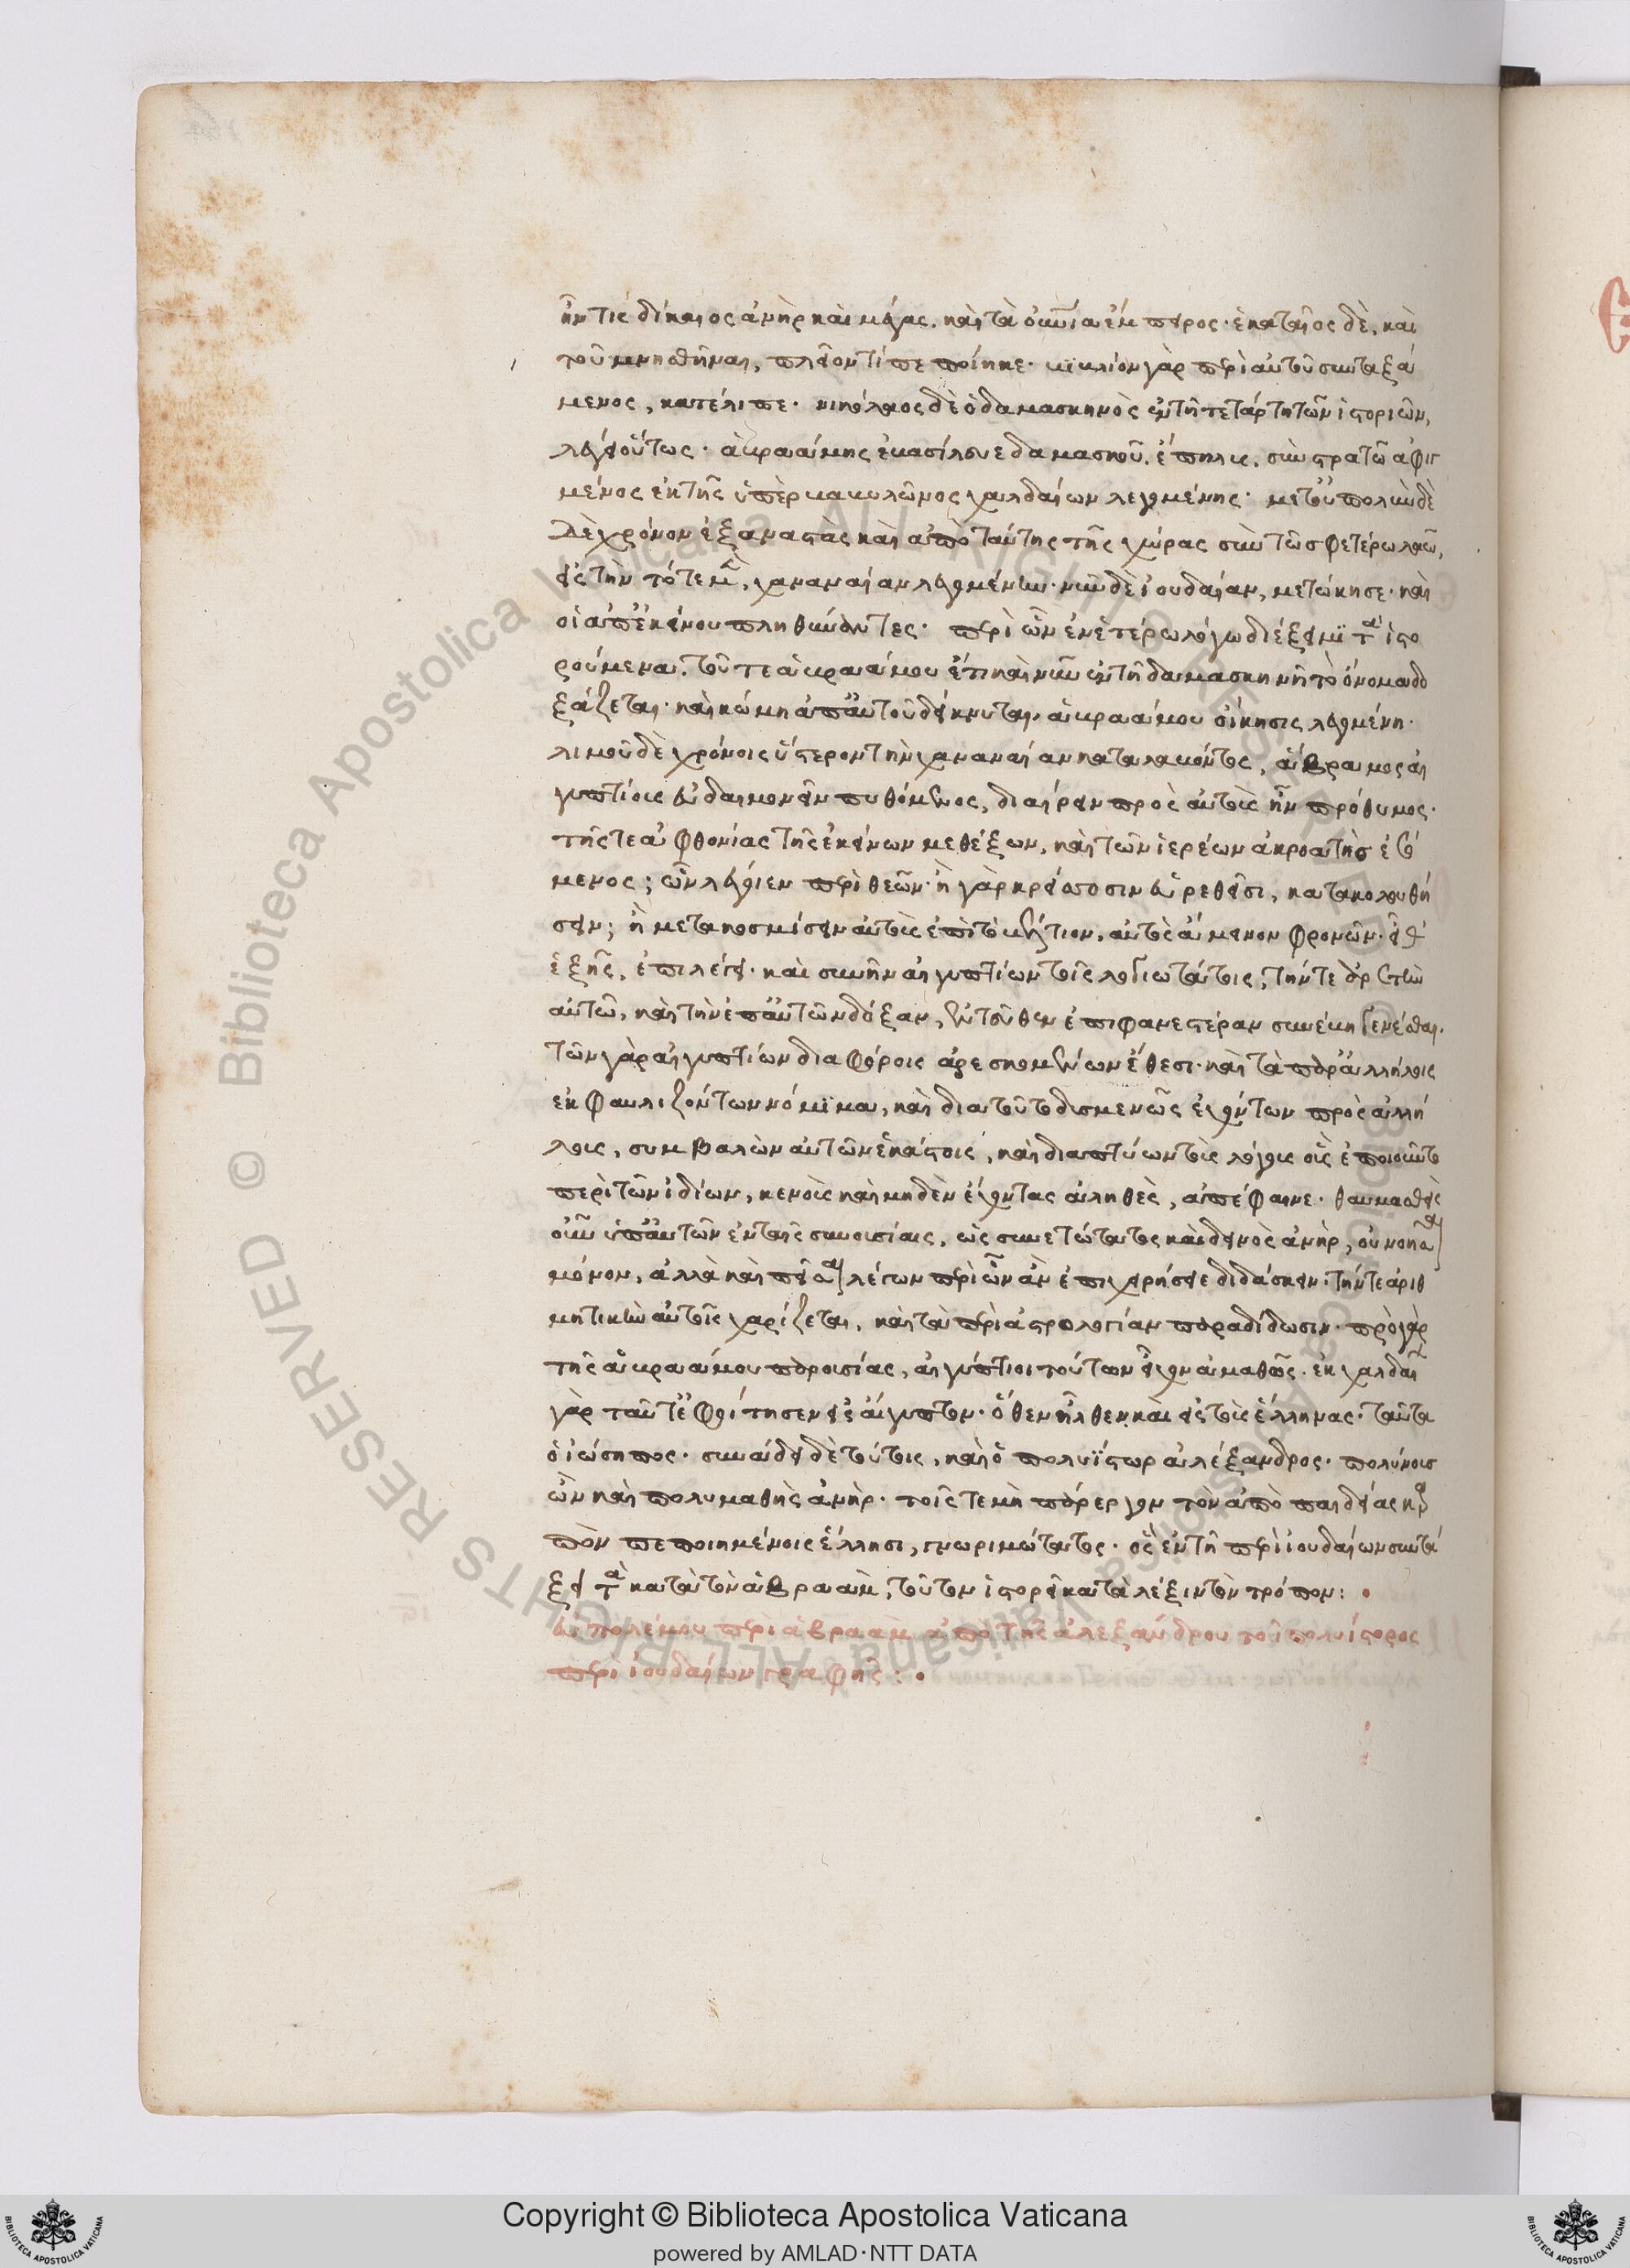 ἦν τις δίκαιος ἀνὴρ καὶ μέγας. καὶ τὰ οὐράνια ἔμπειρος· ἑκαταῖος δὲ, καὶ
τοῦ μνησθῆναι, πλεῖόν τι πεποίηκε· βιβλίον γὰρ περὶ αὐτοῦ συνταξά
μενος, κατέλιπε· νικόλαος δὲ ὁ δαμασκηνὸς ἐν τῇ τετάρτῃ τῶν ἱστοριῶν,
λέγει οὕτως· ἀβραάμης ἐβασίλευε δαμασκοῦ. ἔπηλυς. σὺν στρατῷ ἀφιγ
μένος ἐκ τῆς ὑπὲρ βαβυλῶνος χαλδαίων λεγομένης· μετ' οὐ πολὺν δὲ
δὲ χρόνον ἐξαναστὰς καὶ ἀπὸ ταύτης τῆς χώρας σὺν τῷ σφετέρῳ λαῷ,
εἰς τὴν τότε μὲν, χαναναίαν λεγομένην· νῦν δὲ ἰουδαίαν, μετῴκησε· καὶ
οἱ ἀπ' ἐκείνου πληθύναντες· περὶ ὧν ἐν ἑτέρῳ λόγῳ διέξειμι τὰ ἱστο
ρούμενα. τοῦ τε ἀβραάμου ἔτι καὶ νῦν ἐν τῇ δαμασκηνῇ τὸ ὄνομα δο
ξάζεται· καὶ κώμη ἀπ' αὐτοῦ δείκνυται, ἀβραάμου οἴκησις λεγομένη·
λιμοῦ δὲ χρόνοις ὕστερον τὴν χαναναίαν καταλαβόντος, ἅβραμος αἰ
γυπτίους εὐδαιμονεῖν πυθόμενος, διαίρειν πρὸς αὐτοὺς ἦν πρόθυμος·
τῆς τε ἀφθονίας τῆς ἐκείνων μεθέξων, καὶ τῶν ἱερέων ἀκροατὴς ἐσό
μενος; ὧν λέγοιεν περὶ θεῶν· ἢ γὰρ κρείσσοσιν εὑρεθεῖσι, κατακολουθή
σειν; ἢ μετακοσμήσειν αὐτοὺς ἐπὶ τὸ βέλτιον, αὐτὸς ἄμεινον φρονῶν· εἶθ'
ἑξῆς, ἐπιλέγει· καὶ συνῆν αἰγυπτίων τοῖς λογιωτάτοις, τήν τε ἀρετὴν
αὐτῷ, καὶ τὴν ἐπ' αὐτῷ δόξαν, ἐντεῦθεν ἐπιφανεστέραν συνέβη γενέσθαι.
τῶν γὰρ αἰγυπτίων διαφόροις ἀρεσκομένων ἔθεσι· καὶ τὰ παρ' ἀλλήλοις
ἐκφαυλιζόντων νόμιμα, καὶ διὰ τοῦτο δυσμενῶς ἐχόντων πρὸς ἀλλή
λους, συμβαλὼν αὐτῶν ἑκάστοις, καὶ διαπτύων τοὺς λόγους οὓς ἐποιοῦντο
περὶ τῶν ἰδίων, κενοὺς καὶ μηδὲν ἔχοντας ἀληθὲς, ἀπέφαινε· θαυμασθεὶς
οὖν ὑπ' αὐτῶν ἐν ταῖς συνουσίαις, ὡς συνετώτατος καὶ δεινὸς ἀνὴρ, οὐ νοῆσαι
μόνον, ἀλλὰ καὶ πεῖσαι λέγων περὶ ὧν ἂν ἐπιχειρήσειε διδάσκειν· τήν τε ἀριθ
μητικὴν αὐτοῖς χαρίζεται, καὶ τὰ περὶ ἀστρολογίαν παραδίδωσιν· πρὸ γὰρ
τῆς ἀβραάμου παρουσίας, αἰγύπτιοι τούτων εἶχον ἀμαθῶς. ἐκ χαλδαίων
γὰρ ταῦτ' ἐφοίτησεν εἰς αἴγυπτον· ὅθεν ἦλθεν καὶ εἰς τοὺς ἕλληνας· ταῦτα
ὁ ἰώσηπος· συνᾴδει δὲ τούτοις, καὶ ὁ πολυΐστωρ ἀλέξανδρος· πολύνους
ὢν καὶ πολυμαθὴς ἀνήρ· τοῖς τε μὴ πάρεργον τὸν ἀπὸ παιδείας καρ
πὸν πεποιημένοις ἕλλησι, γνωριμώτατος· ὃς ἐν τῇ περὶ ἰουδαίων συντά
ξει τὰ κατὰ τὸν ἀβραὰμ, τοῦτον ἱστορεῖ κατὰ λέξιν τὸν τρόπον:
εὐπολέμου περὶ ἀβραὰμ ἀπὸ τῆς ἀλεξάνδρου τοῦ πολυίστορος
περὶ ἰουδαίων γραφῆς:
© Biblioteca Apostolica Vaticana ALL RIGHTS RESERVED
Copyright © Biblioteca Apostolica Vaticana
powered by AMLAD·NTT DATA
BIBLIOTECA APOSTOLICA VATICANA
BIBLIOTECA APOSTOLICA VATICANA